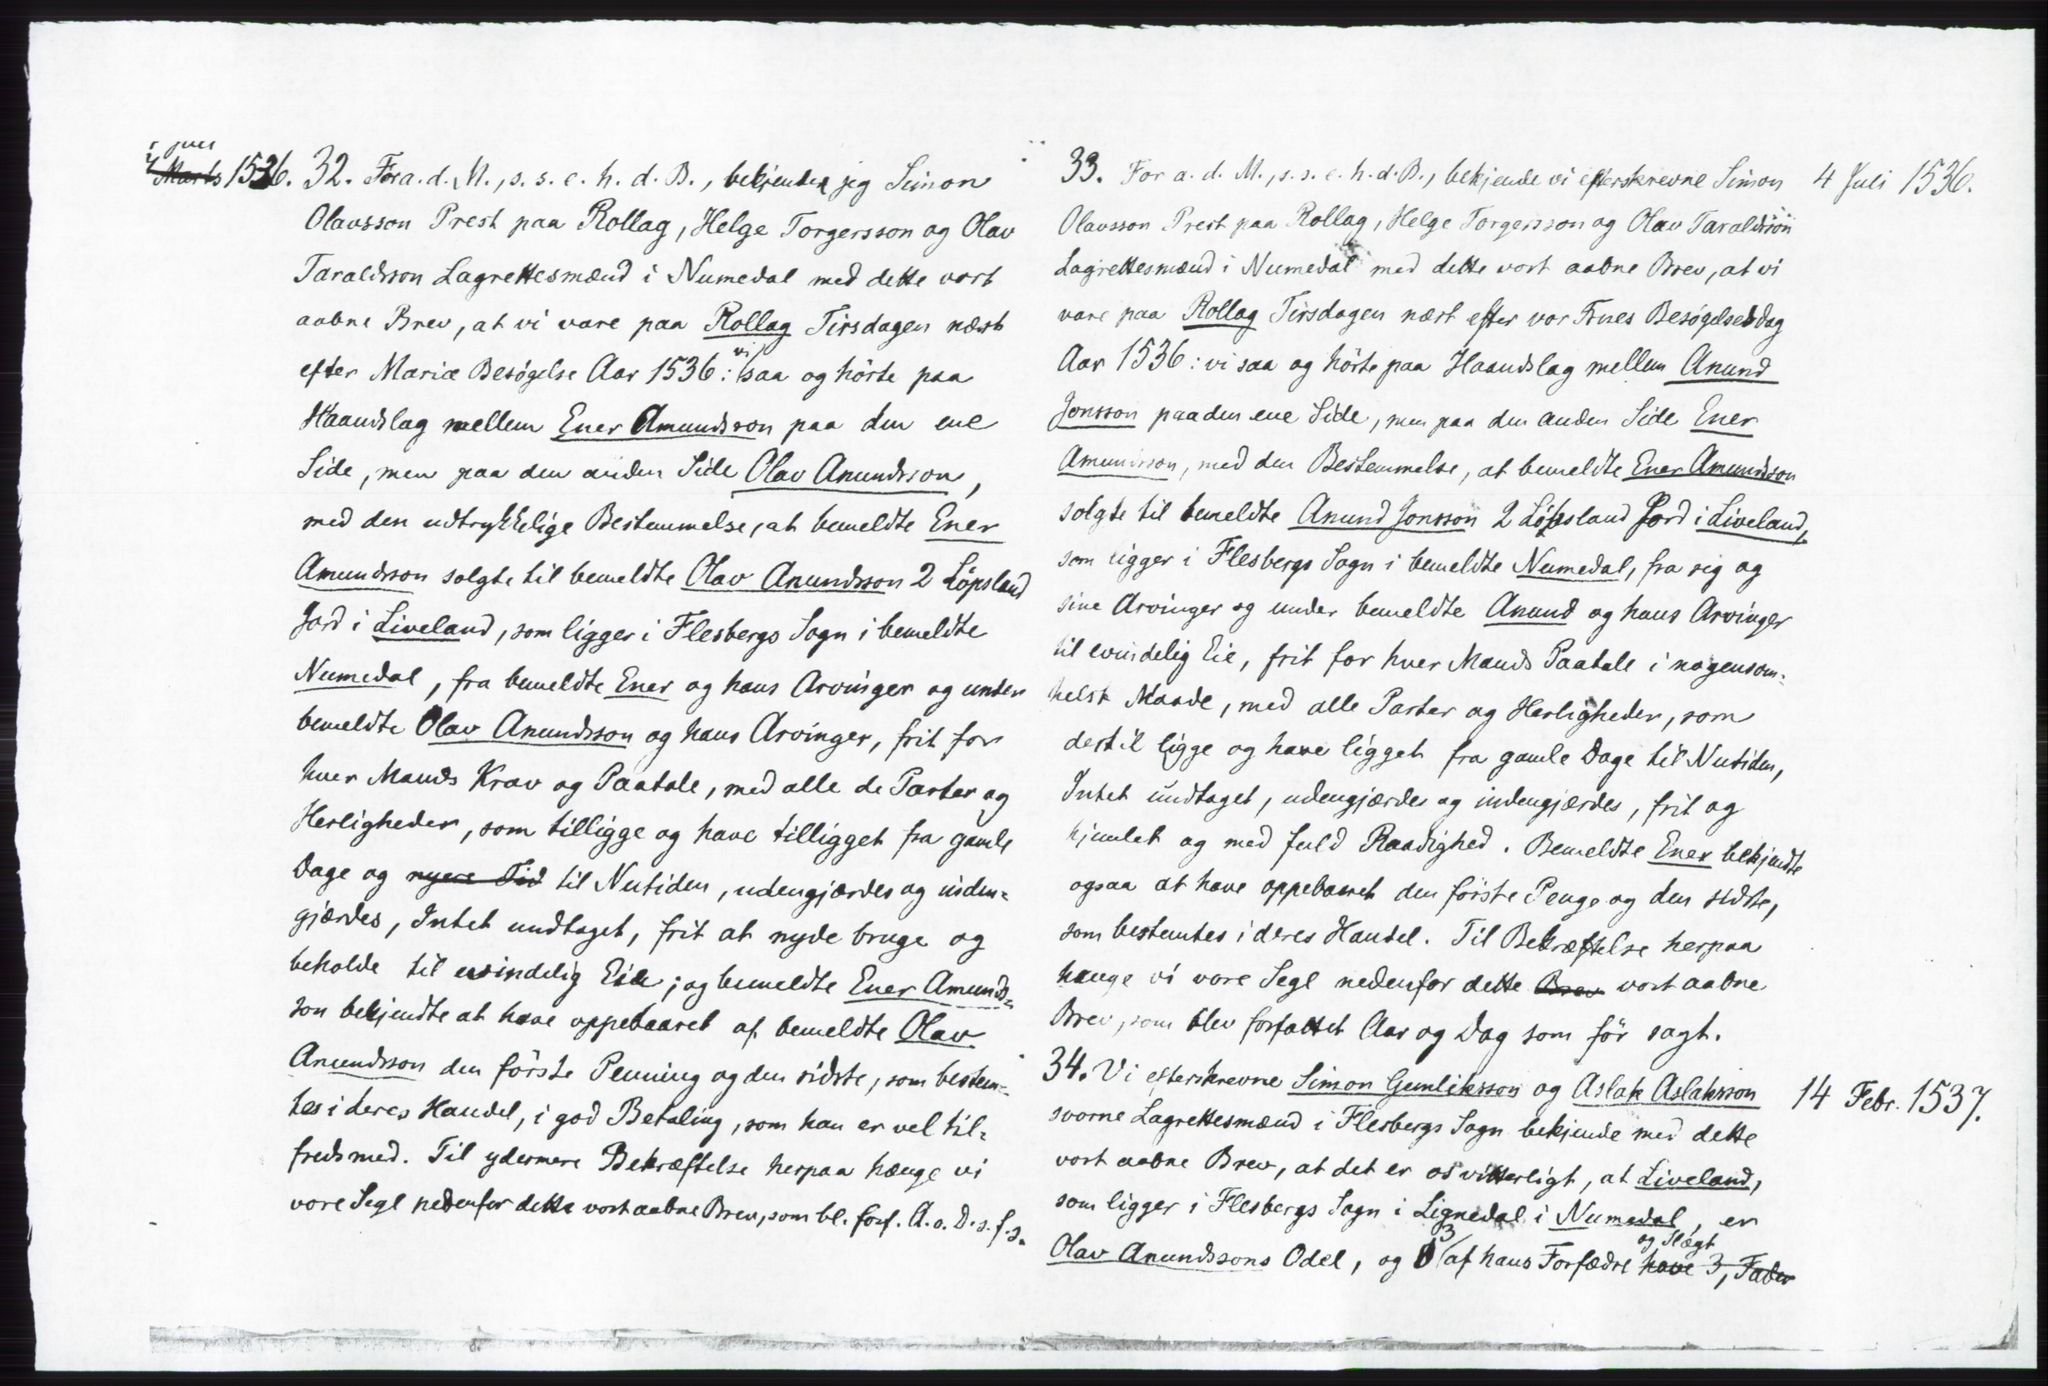 4 Juli
4 Marts 1536. 32. For a. d. M., s. s. e. h. d. B., bekjender jeg Simon
Olavsson Prest paa Rollag, Helge Torgersson og Olav
Taraldsson Lagrettesmænd i Numedal med dette vort
aabne Brev, at vi vare paa Rollag Tirsdagen næst
efter Mariæ Besøgelse Aar 1536: vi saa og hörte paa
Haandslag mellem Ener Amundsson paa den ene
Side, men paa den anden Side Olav Anundsson,
med den udtrykkelige Bestemmelse, at bemeldte Ener
Amundsson solgte til bemeldte Olav Anundsson 2 Löpsland
Jord i Liveland, som ligger i Flesbergs Sogn i bemeldte
Numedal, fra bemeldte Ener og hans Arvinger og under
bemeldte Olav Anundsson og hans Arvinger, frit for
hver Mands Krav og Paatale, med alle de Parter og
Herligheder, som tilligge og have tilligget fra gamle
Dage og nyere Tid til Nutiden, udengjærdes og inden-
gjærdes, Intet undtaget, frit at nyde bruge og
beholde til evindelig Eie; og bemeldte Ener Amunds-
son bekjendte at have oppebaaret af bemeldte Olav
Anundsson den förste Penning og den sidste, som bestem-
tes i deres Handel, i god Betaling, som han er vel til-
freds med. Til ydermere Bekræftelse herpaa hænge vi
vore Segl nedenfor dette vort aabne Brev, som bl. forf. A. o. D. s. f. s.
33. For a. d. M., s. s. e. h. d. B., bekjende vi efterskrevne Simon 4 Juli 1536.
Olavsson Prest paa Rollag, Helge Torgersson og Olav Taraldsson
Lagrettesmænd i Numedal med dette vort aabne Brev, at vi
vare paa Rollag Tirsdagen næst efter vor Frues Besøgelsesdag
Aar 1536: vi saa og hörte paa Haandslag mellem Anund
Jonsson paa den ene Side, men paa den anden Side Ener
Amundsson, med den Bestemmelse, at bemeldte Ener Amundsson
solgte til bemeldte Anund Jonsson 2 Löpsland Jord i Liveland,
som ligger i Flesbergs Sogn i bemeldte Numedal, fra sig og
sine Arvinger og under bemeldte Anund og hans Arvinger
til evindelig Eie, frit for hver Mands Paatale i nogensom-
helst Maade, med alle Parter og Herligheder, som
dertil ligge og have ligget fra gamle Dage til Nutiden,
Intet undtaget, udengjærdes og indengjærdes, frit og
hjemlet og med fuld Raadighed. Bemeldte Ener bekjendte
ogsaa at have oppebaaret den förste Penge og den sidste,
som bestemtes i deres Handel. Til Bekræftelse herpaa
hænge vi vore Segl nedenfor dette Brev vort aabne
Brev, som blev forfattet Aar og Dag som för sagt.
34. Vi efterskrevne Simon Gunliksson og Aslak Aslaksson 14 Febr. 1537.
svorne Lagrettesmænd i Flesbergs Sogn bekjende med dette
vort aabne Brev, at det er os vitterligt, at Liveland,
som ligger i Flesbergs Sogn i Lignedal i Numedal, er
Olav Anundssons Odel, og 3 af hans Forfædre og Slægt have 3, Fader